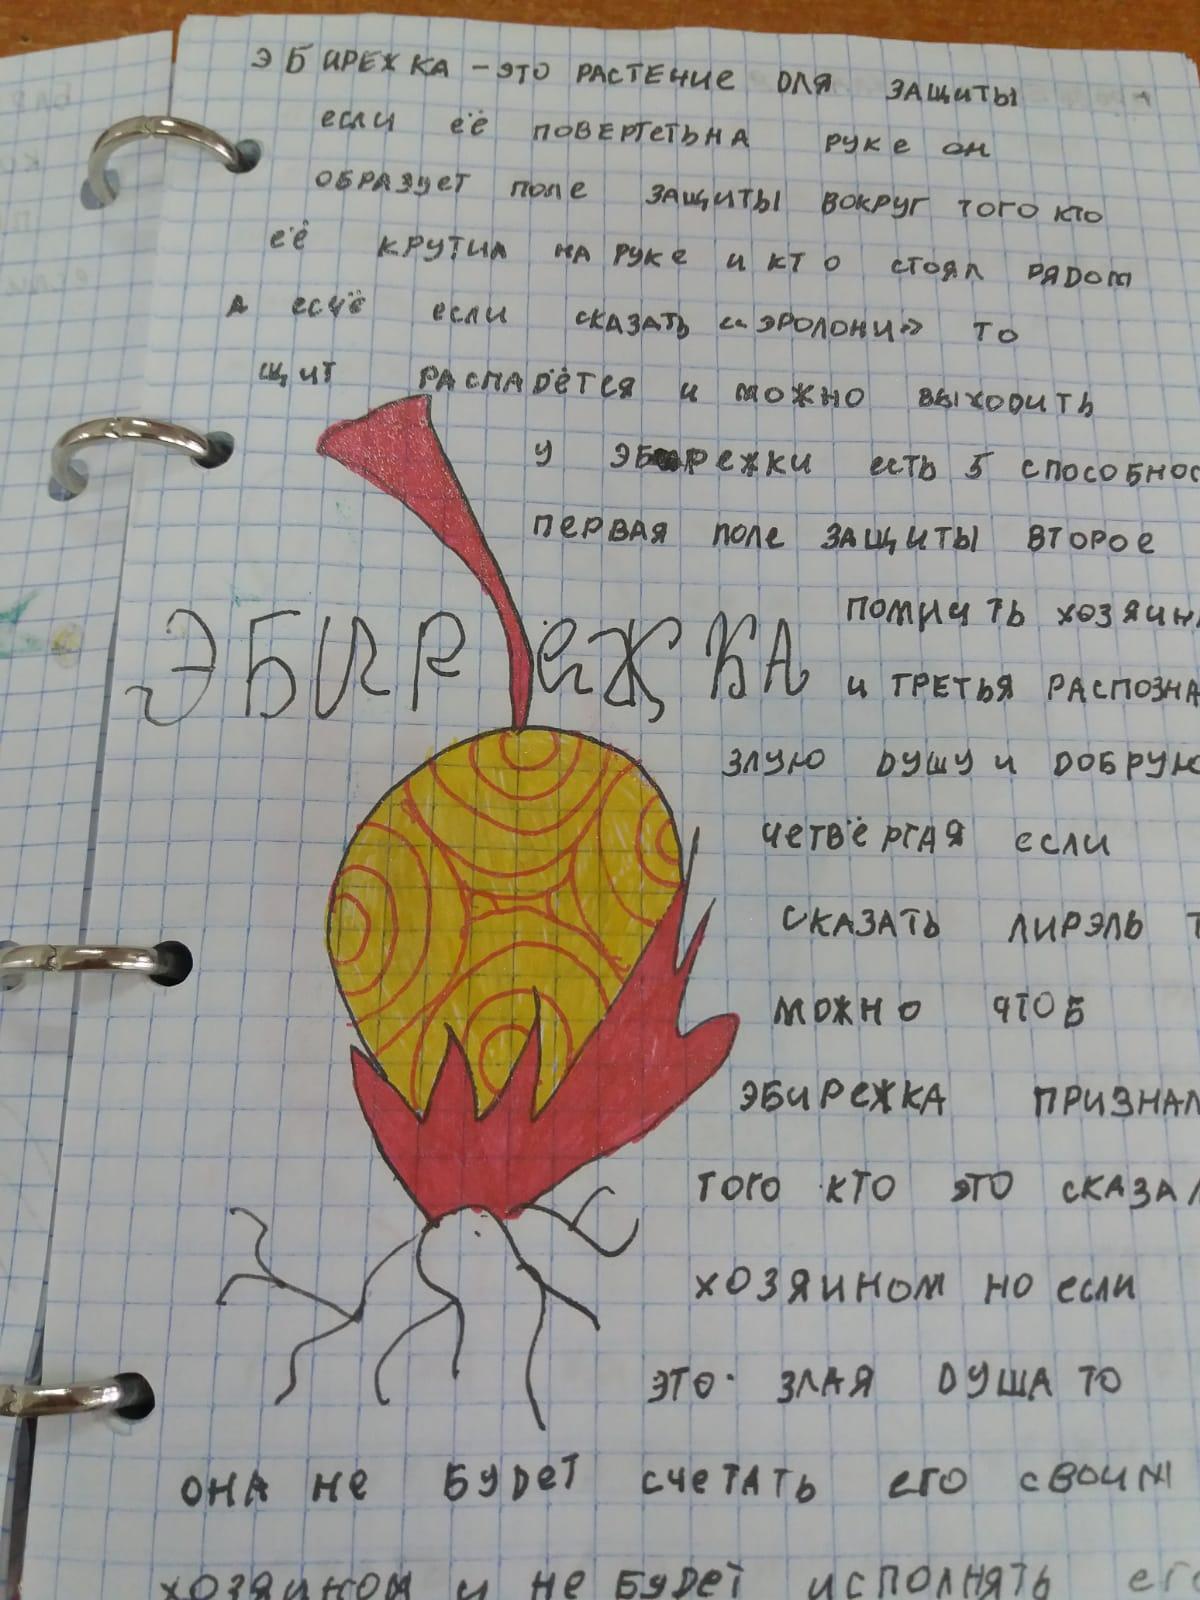 ЭБИРЕЖКА – ЭТО РАСТЕНИЕ ДЛЯ ЗАЩИТЫ
ЕСЛИ ЕЁ ПОВЕРТЕТЬ НА РУКЕ ОН
ОБРАЗУЕТ ПОЛЕ ЗАЩИТЫ ВОКРУГ ТОГО КТО
ЕЁ КРУТИЛ НА РУКЕ И КТО СТОЯЛ РЯДОМ
А ЕСЧЁ ЕСЛИ СКАЗАТЬ «ЭРОЛОНИ» ТО
ЩИТ РАСПАДЁТСЯ И МОЖНО ВЫХОДИТЬ
У ЭБИРЕЖКИ ЕСТЬ 5 СПОСОБНОС
ПЕРВАЯ ПОЛЕ ЗАЩИТЫ ВТОРОЕ
ПОМНИТЬ ХОЗЯИН
И ТРЕТЬЯ РАСПОЗНА
ЭБИРЕЖКА
ЗЛУЮ ДУШУ И ДОБРУЮ
ЧЕТВЁРТАЯ ЕСЛИ
СКАЗАТЬ ЛИРЭЛЬ Т
МОЖНО ЧТОБ
ЭБИРЕЖКА ПРИЗНАЛ
ТОГО КТО ЭТО СКАЗАЛ
ХОЗЯИНОМ НО ЕСЛИ
ЭТО ЗЛАЯ ДУША ТО
ОНА НЕ БУДЕТ СЧЕТАТЬ ЕГО СВОИМ
ХОЗЯИНОМ И НЕ БУДЕТ ИСПОЛНЯТЬ ЕГО